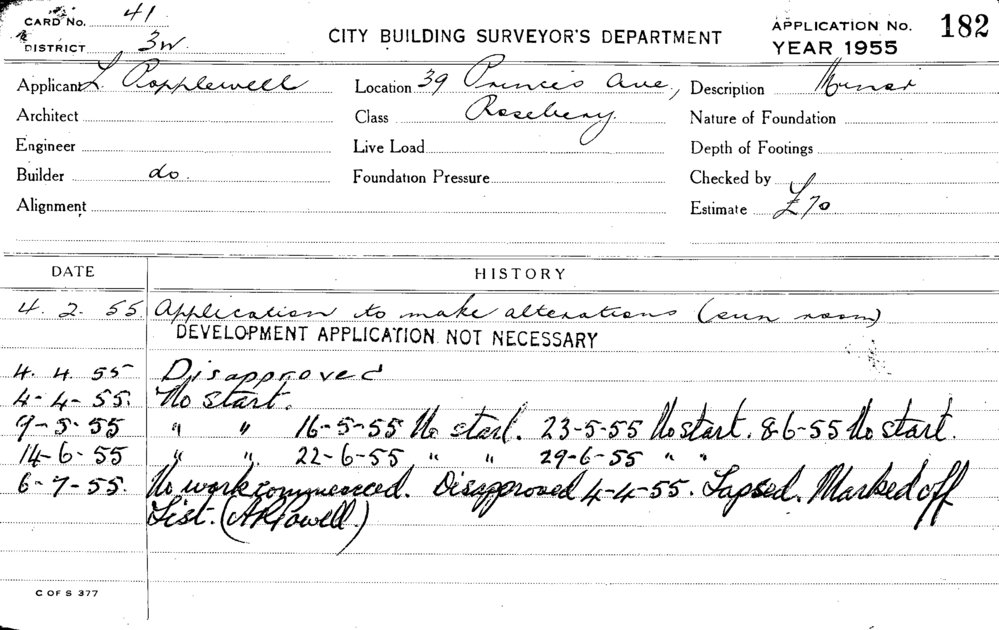 CARD No. 41
DISTRICT 3W
CITY BUILDING SURVEYOR'S DEPARTMENT
APPLICATION No. 182
YEAR 1955
Applicant L. Popplewell Location 39 Princes Ave, Description Minor
Architect Class Rosebery. Nature of Foundation
Engineer Live Load Depth of Footings
Builder do. Foundation Pressure Checked by
Alignment Estimate £70
DATE HISTORY
4. 2. 55 Application to make alterations (sun room)
DEVELOPMENT APPLICATION NOT NECESSARY
4. 4. 55 Disapproved
4-4-55. No start.
9-5-55 " " 16-5-55 No start. 23-5-55 No start. 8-6-55 No start.
14-6-55 " " 22-6-55 " " 29-6-55 " "
6-7-55. No work commenced. Disapproved 4-4-55. Lapsed. Marked off
List. (A R Powell.)
C OF S 377